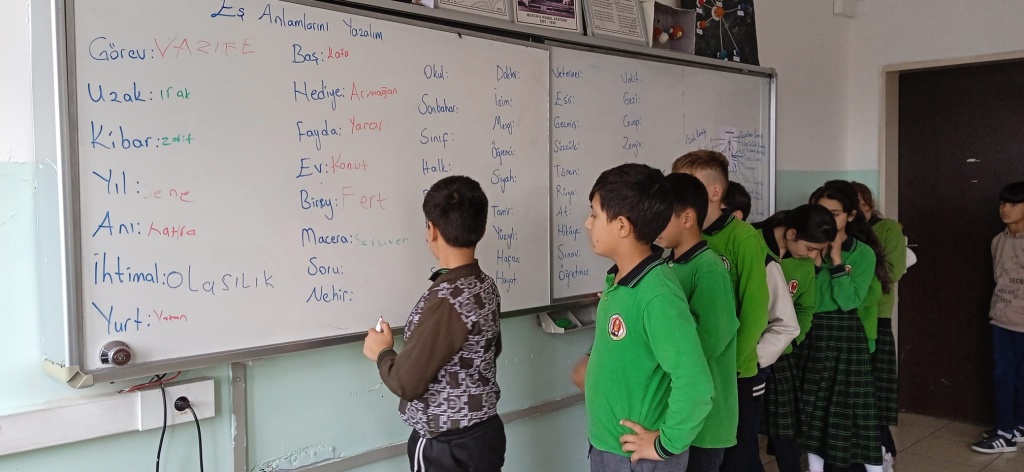 Eş Anlamlarını Yazalım
Görev: VAZİFE
Uzak: ırak
Kibar: zarif
Yıl: sene
Anı: hatıra
İhtimal: OLASILIK
Yurt: Vatan
Baş: kafa
Hediye: Armağan
Fayda: Yarar
Ev: Konut
Birey: Fert
Macera: Serüven
Soru:
Nehir:
Okul:
Sonbahar:
Sınıf:
Halk:
Doktor:
İsim:
Mesaj:
Öğrenci:
Siyah:
Tamir:
Yüzyıl:
Hayat:
Veteriner:
Esir:
Geçmiş:
Sözcük:
Tören:
Rüya:
At:
Hikâye:
Sınav:
Öğretmen:
Vakit:
Gezi:
Cevap:
Zengin: